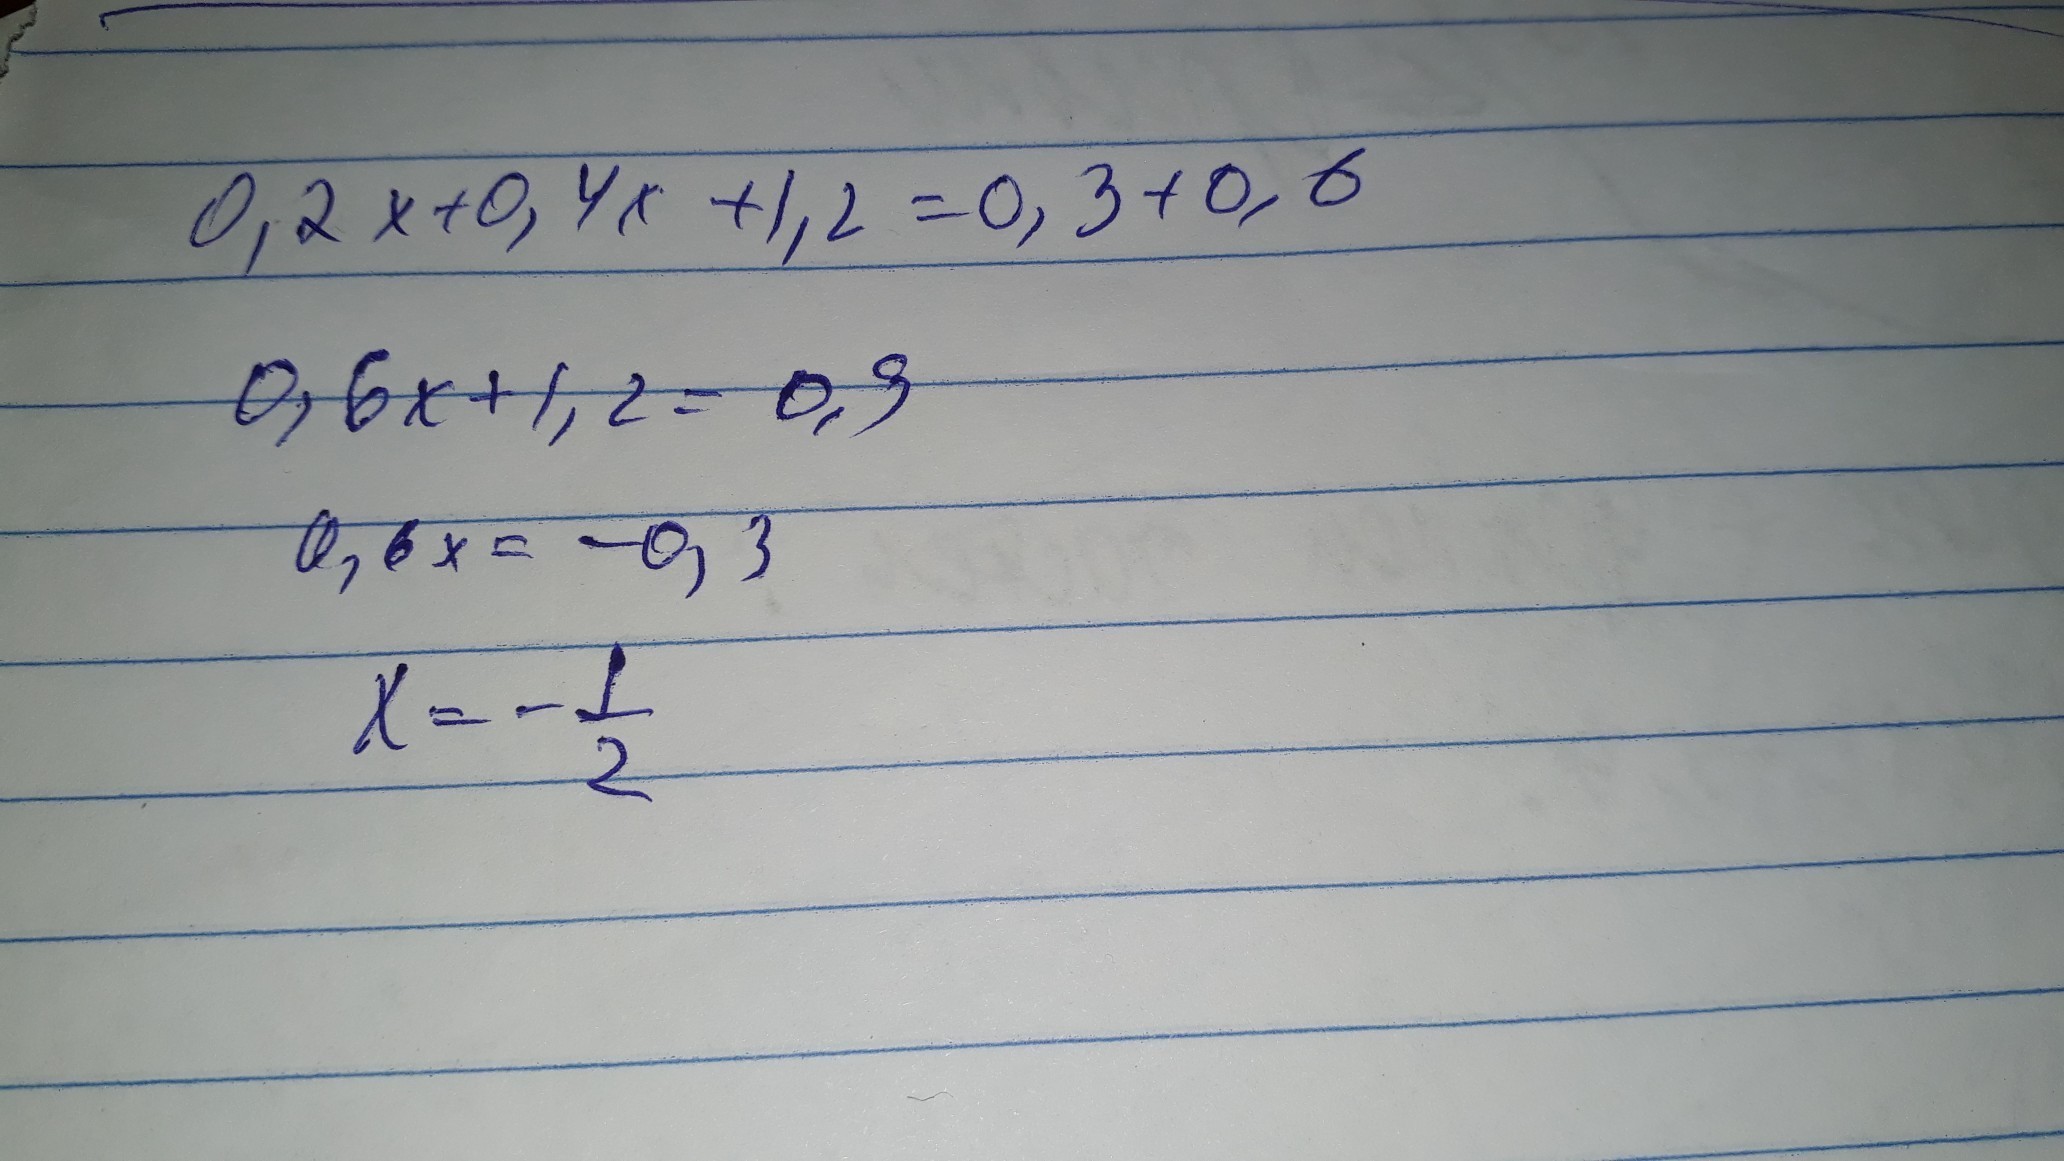 0,2x+0,4x+1,2=0,3+0,6
0,6x+1,2=0,9
0,6x=-0,3
x=-1/2